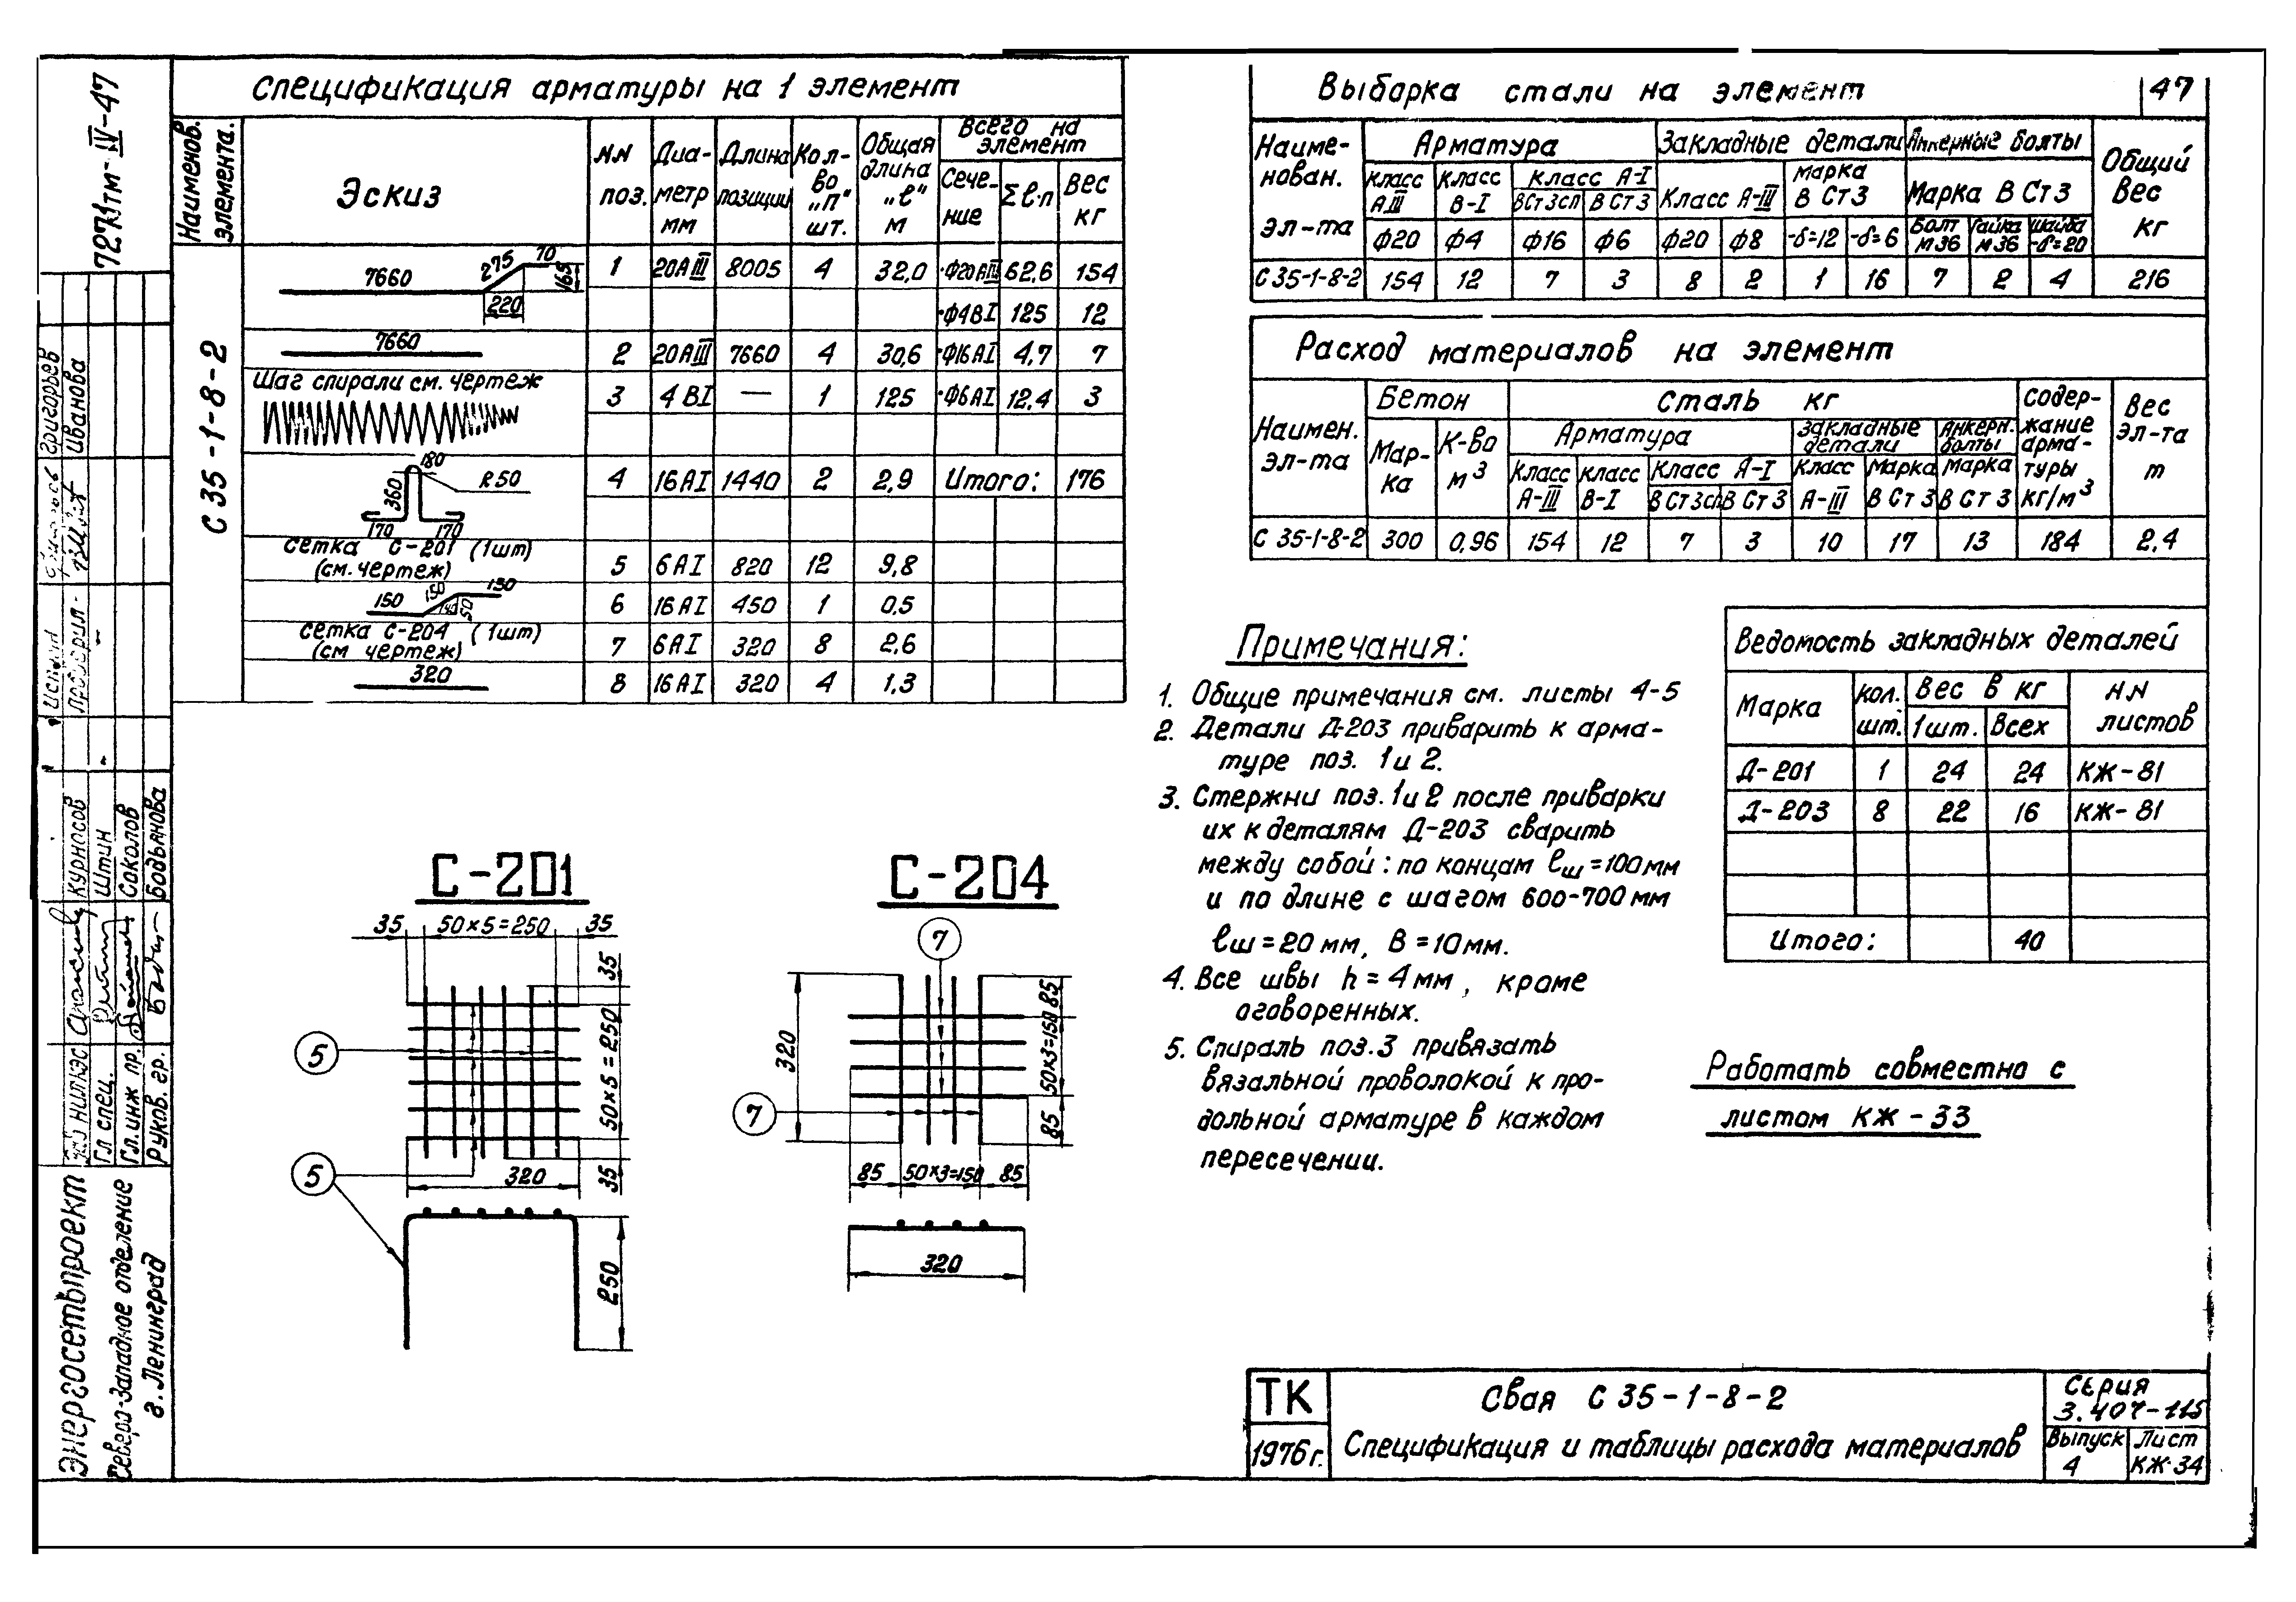 7271тм-IV-47
Спецификация арматуры на 1 элемент
Наименов. элемента.
Эскиз
NN поз.
Диаметр мм
Длина позиции
Кол-во „п" шт.
Общая длина „ℓ" м
Всего на элемент
Сечение
Σℓ·п
Вес кг
С 35-1-8-2
7660 275 70 165 220
1 20АIII 8005 4 32,0 Ф20АIII 62,6 154
Ф4ВI 125 12
7660
2 20АIII 7660 4 30,6 Ф16АI 4,7 7
Шаг спирали см. чертеж
3 4ВI — 1 125 Ф6АI 12,4 3
180 R50 360 170 170
4 16АI 1440 2 2,9 Итого: 176
сетка С-201 (1шт)
(см. чертеж)
5 6АI 820 12 9,8
150 150 140 50 150
6 16АI 450 1 0,5
сетка С-204 (1шт)
(см чертеж)
7 6АI 320 8 2,6
320
8 16АI 320 4 1,3
Выборка стали на элемент
47
Наименован. эл-та
Арматура
Закладные детали
Анкерные болты
Общий вес кг
Класс АIII
Класс В-I
Класс А-I
ВСт3сп
ВСт3
Класс А-III
Марка В Ст3
Марка В Ст3
Ф20 Ф4 Ф16 Ф6 Ф20 Ф8 -δ=12 -δ=6
Болт М36
Гайка М36
Шайба -δ=20
С 35-1-8-2 154 12 7 3 8 2 1 16 7 2 4 216
Расход материалов на элемент
Наимен. эл-та
Бетон
Сталь кг
Содержание арматуры кг/м3
Вес эл-та т
Марка
К-во м3
Арматура
Закладные детали
Анкерн. болты
Класс А-III
Класс В-I
Класс А-I
ВСт3сп
ВСт3
Класс А-III
Марка ВСт3
Марка ВСт3
С 35-1-8-2 300 0,96 154 12 7 3 10 17 13 184 2,4
Примечания:
1. Общие примечания см. листы 4-5
2. Детали Д-203 приварить к арма-
туре поз. 1и 2.
3. Стержни поз. 1и 2 после приварки
их к деталям Д-203 сварить
между собой: по концам ℓш=100мм
и по длине с шагом 600-700мм
ℓш=20мм, В=10мм.
4. Все швы h=4мм, кроме
оговоренных.
5. Спираль поз.3 привязать
вязальной проволокой к про-
дольной арматуре в каждом
пересечении.
Ведомость закладных деталей
Марка
кол. шт.
Вес в кг
1шт. Всех
NN листов
Д-201 1 24 24 КЖ-81
Д-203 8 22 16 КЖ-81
Итого: 40
Работать совместно с
листом КЖ-33
С-201
35 50×5=250 35
35 50×5=250 35
5
5
320
250
С-204
7
7
320
85 50×3=150 85
85 50×3=150 85
320
ТК
1976г.
Свая С 35-1-8-2
Спецификация и таблицы расхода материалов
Серия
3.407-115
Выпуск
4
Лист
КЖ-34
Энергосетьпроект
Северо-Западное отделение
г. Ленинград
НИЛКЭС
Курносов
Гл спец.
Штин
Гл.инж пр.
Соколов
Руков. гр.
Водьянова
Проверил
Григорьев
Иванова